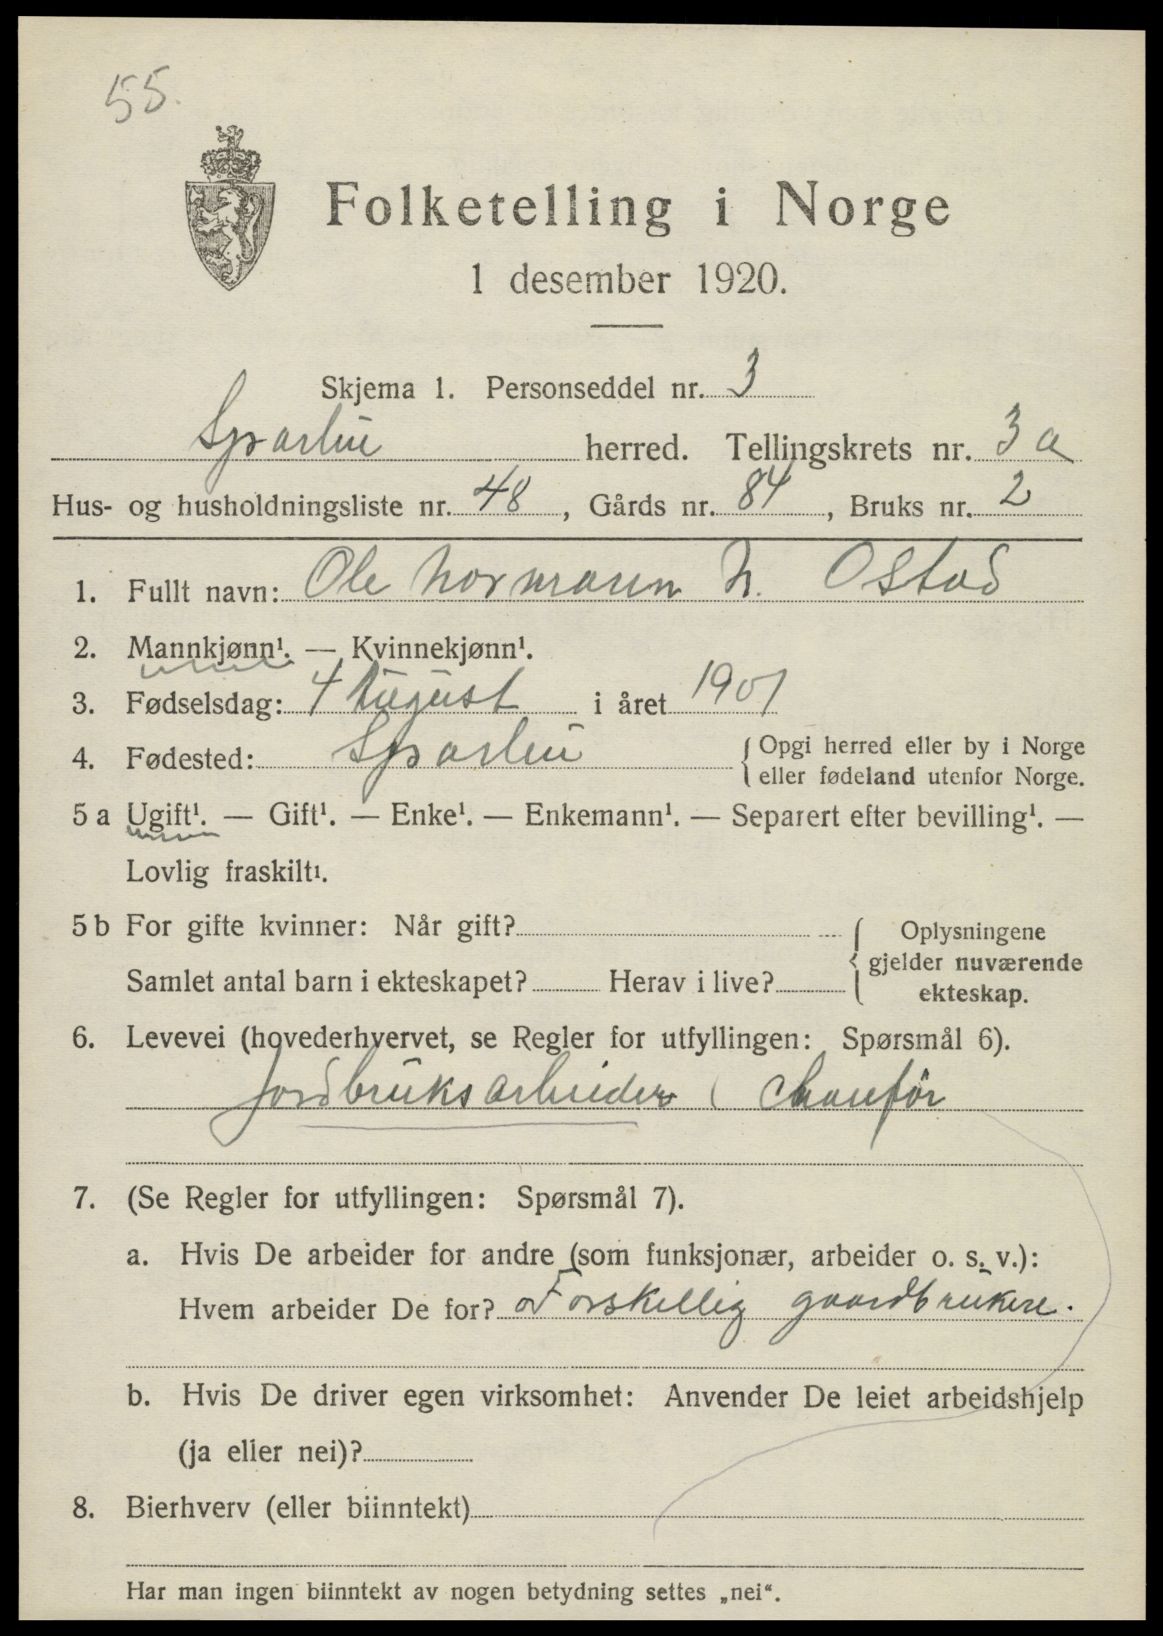 55.
Folketelling i Norge
1 desember 1920.
Skjema 1. Personseddel nr. 3
Sparbu herred. Tellingskrets nr. 3 a
Hus- og husholdningsliste nr. 48, Gårds nr. 84, Bruks nr. 2
1. Fullt navn: Ole Normann N. Ostad
2. Mannkjønn¹. — Kvinnekjønn¹.
3. Fødselsdag: 4 August i året 1901
4. Fødested: Sparbu { Opgi herred eller by i Norge
eller fødeland utenfor Norge.
5 a Ugift¹. — Gift¹. — Enke¹. — Enkemann¹. — Separert efter bevilling¹. —
Lovlig fraskilt¹.
5 b For gifte kvinner: Når gift? { Oplysningene
gjelder nuværende
Samlet antal barn i ekteskapet? Herav i live? ekteskap.
6. Levevei (hovederhvervet, se Regler for utfyllingen: Spørsmål 6).
Jordbruksarbeider ( Chauför
7. (Se Regler for utfyllingen: Spørsmål 7).
a. Hvis De arbeider for andre (som funksjonær, arbeider o. s. v.):
Hvem arbeider De for? Forskellig gaardbrukere.
b. Hvis De driver egen virksomhet: Anvender De leiet arbeidshjelp
(ja eller nei)?
8. Bierhverv (eller biinntekt)
Har man ingen biinntekt av nogen betydning settes „nei“.